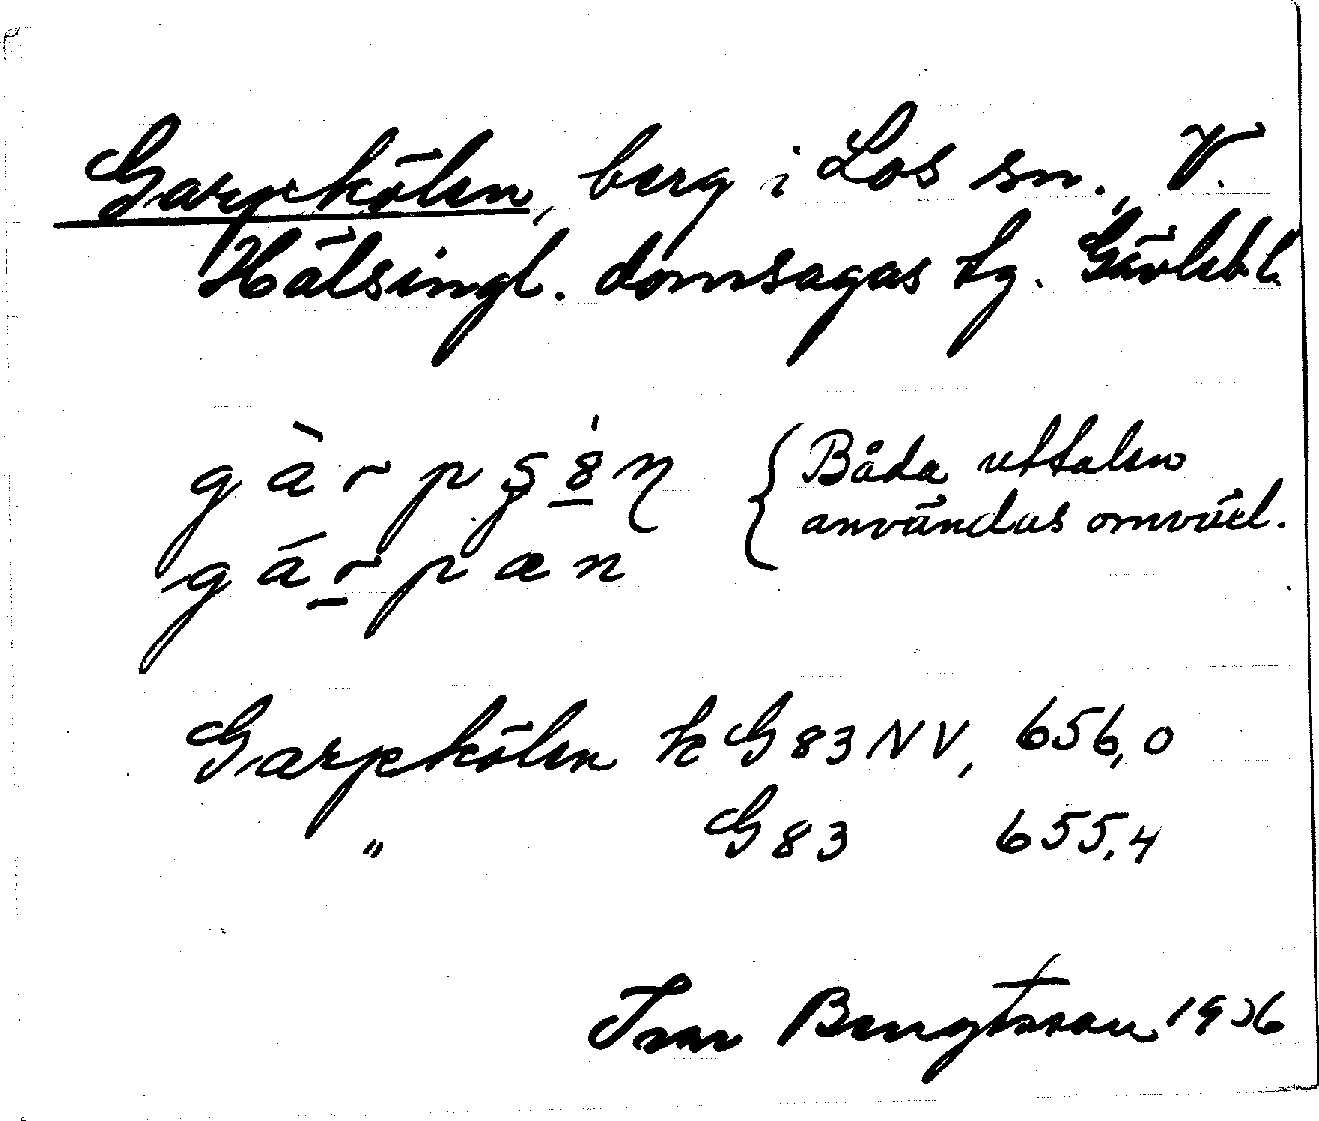 Garpkölen, berg i Los sn., V.
Hälsingl. domsagas tg. Gävleb. l.
gàrpʂ8̲n { Båda uttalen
användas omväxl.
gár̲pæn
Garpekölen k G83NV, 656,0
" G83 655,4
Ivar Bengtsson 1936